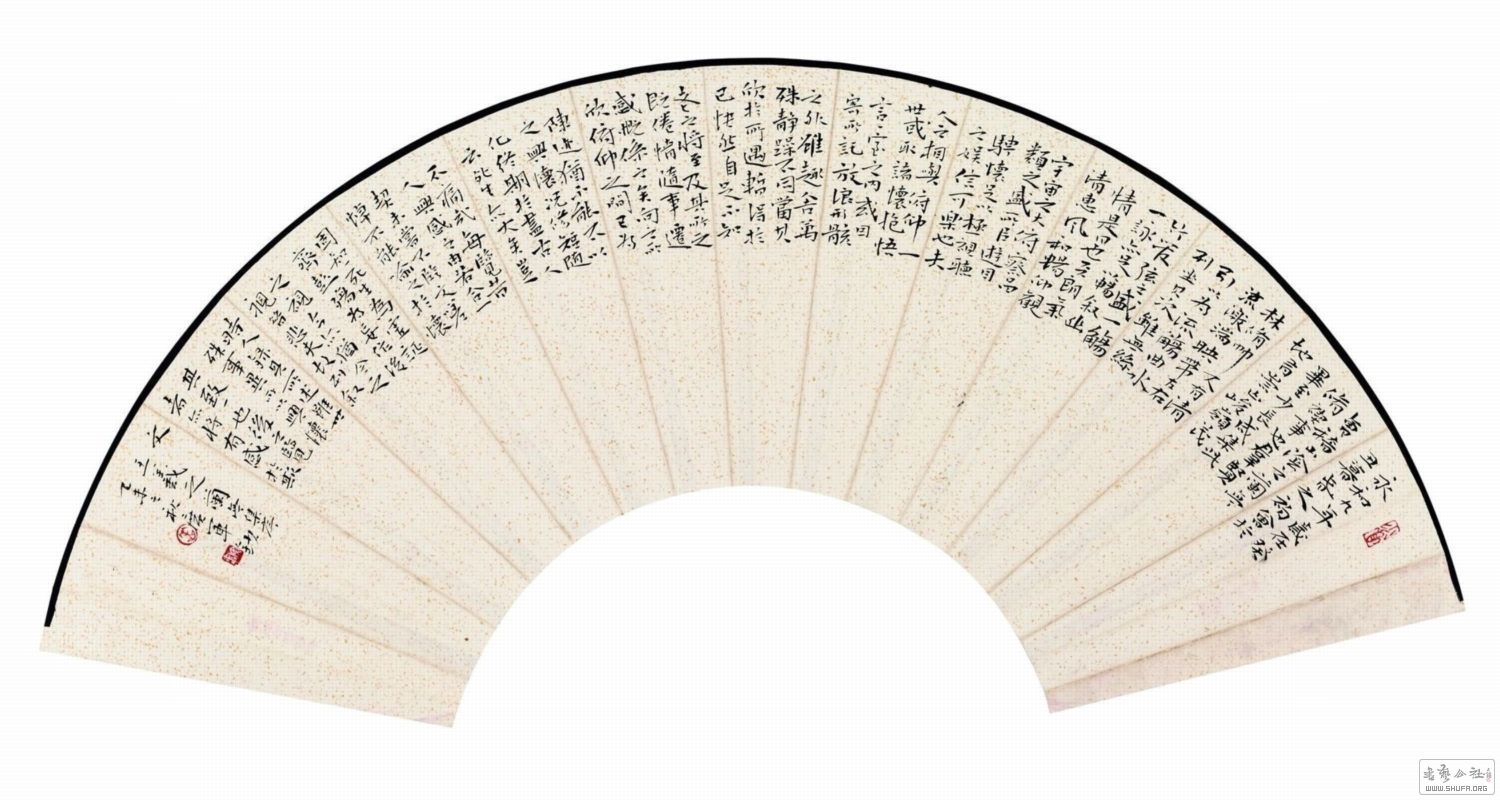 永和九年歲在癸
丑暮春之初會於
會稽山陰之蘭亭
脩禊事也羣賢
畢至少長咸集此
地有崇山峻嶺茂
林脩竹又有清
流激湍映帶左右
引以為流觴曲水
列坐其次雖無絲
竹管弦之盛一觴
一詠亦足以暢敘幽
情是日也天朗氣
清惠風和暢仰觀
宇宙之大俯察品
類之盛所以遊目
騁懷足以極視聽
之娛信可樂也夫
人之相與俯仰一
世或取諸懷抱悟
言一室之內或因
寄所託放浪形骸
之外雖趣舍萬
殊靜躁不同當其
欣於所遇暫得於
己快然自足不知
老之將至及其所之
既倦情隨事遷
感慨係之矣向之所
欣俯仰之間已為
陳迹猶不能不以
之興懷況脩短隨
化終期於盡古人
云死生亦大矣豈
不痛哉每覽昔
人興感之由若合一
契未嘗不臨文嗟
悼不能喻之於懷
固知一死生為虛誕
齊彭殤為妄作後之
視今亦由今之
視昔悲夫故列敘
時人錄其所述雖世
殊事異所以興懷
其致一也後之覽
者亦將有感於斯
文
王羲之蘭亭集序
乙未之秋
書藝公社
WWW.SHUFA.ORG